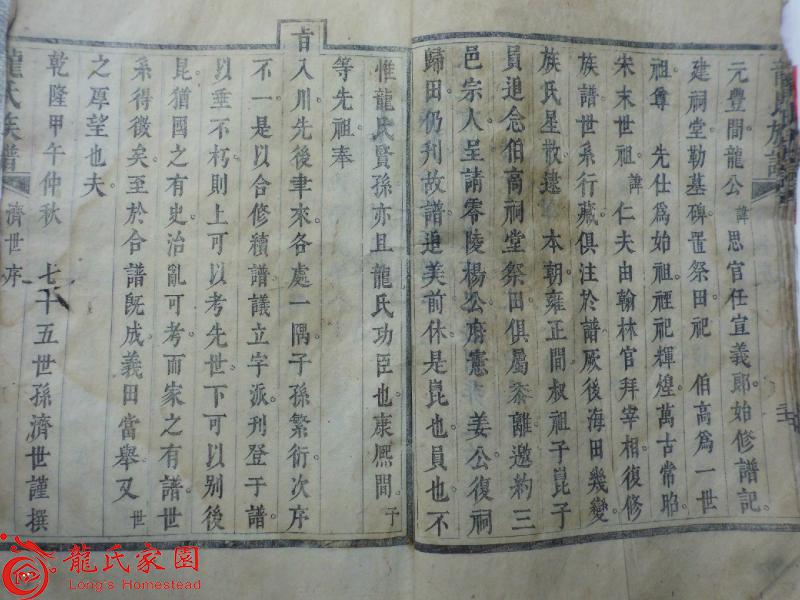 龍氏族譜
元豐間龍公諱思官任宣義郎始修譜記
建祠堂勒墓碑置祭田祀 伯高爲一世
祖尊 先仕爲始祖禋祀輝煌萬古常昭
宋末世祖諱仁夫由翰林官拜宰相復修
族譜世系行藏俱注於譜厥後海田幾變
族氏星散逮 本朝雍正間叔祖子崑子
員追念伯高祠堂祭田俱屬黍離邀約三
邑宗人呈請零陵楊公府憲 姜公復祠
歸田仍刋故譜追美前休是崑也員也不
惟龍氏賢孫亦且龍氏功臣也康熈間于
等先祖奉
旨入川先後聿來各處一隅子孫繁衍次序
不一是以合修積譜議立字派刋登于譜
以垂不朽則上可以考先世下可以别後
昆猶國之有史治亂可考而家之有譜世
系得徵矣至於合譜旣成義田當舉又世
之厚望也夫
乾隆甲午仲秋 七十五世孫濟世謹撰
龍氏族譜 濟世序
龍氏家園
Long's Homestead